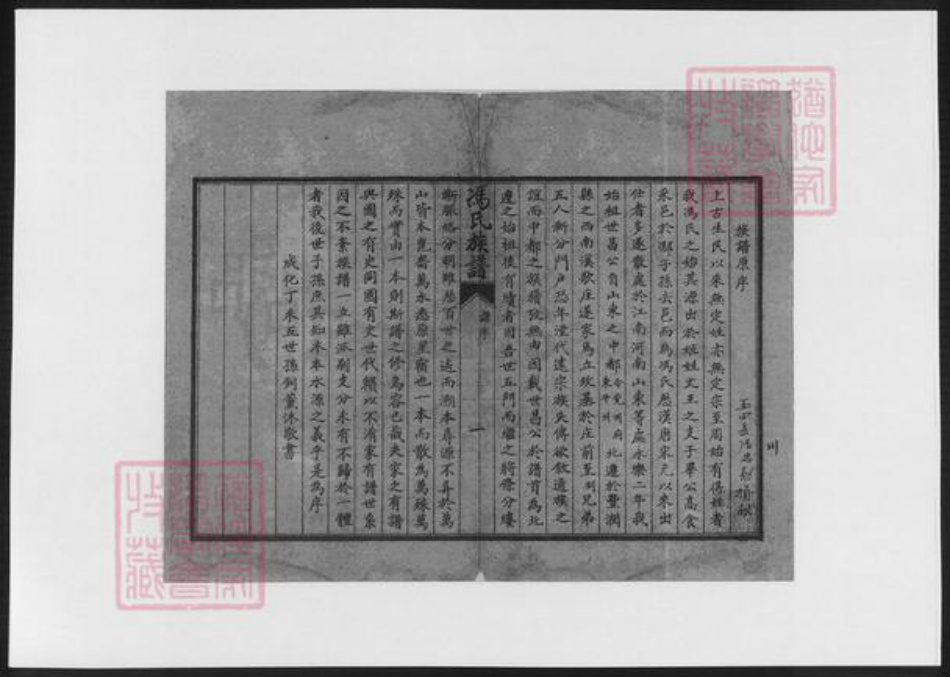 族譜原序
上古生民以來無定姓亦無定宗至周始有得姓者
我馮氏之始其源出於姬姓文王之支子畢公高食
采邑於馮子孫去邑而為馮氏歷漢唐宋元以來出
仕者多遂散處於江南河南山東等處永樂二年我
始祖世昌公自山東之中都 東平州 北遷於豐潤
縣之西南溪歌庄遂家焉立坟墓於庄前至 兄弟
五人漸分門戶恐年湮代遠宗族失傳欲敘遠族之
誼而中都之族積攷無由因載世昌公於譜首為北
遷之始祖後有續者因吾世五門而繼之將條分縷
馮氏族譜
譜序
一
晰脈絡分明雖歷百世之遠而溯本尋源不異於萬
山皆本崑崙萬水悉原星宿也一本而散為萬殊萬
殊而實由一本則斯譜之修烏容已哉夫家之有譜
與國之有史同國有史世代賴以不淆家有譜世系
因之不紊族譜一立雖派別支分未有不歸於一體
者我後世子孫庶其知木本水源之義乎是為序
成化丁未五世孫 薰沐敬書